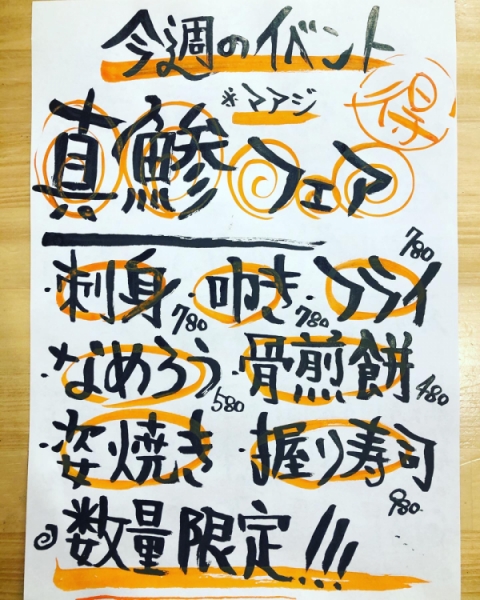 今週のイベント
得
※マアジ
真鯵フェア
・刺身 780 ・叩き 780 ・フライ 780
・なめろう 580 ・骨煎餅 480
・姿焼き ・握り寿司 980
数量限定!!!